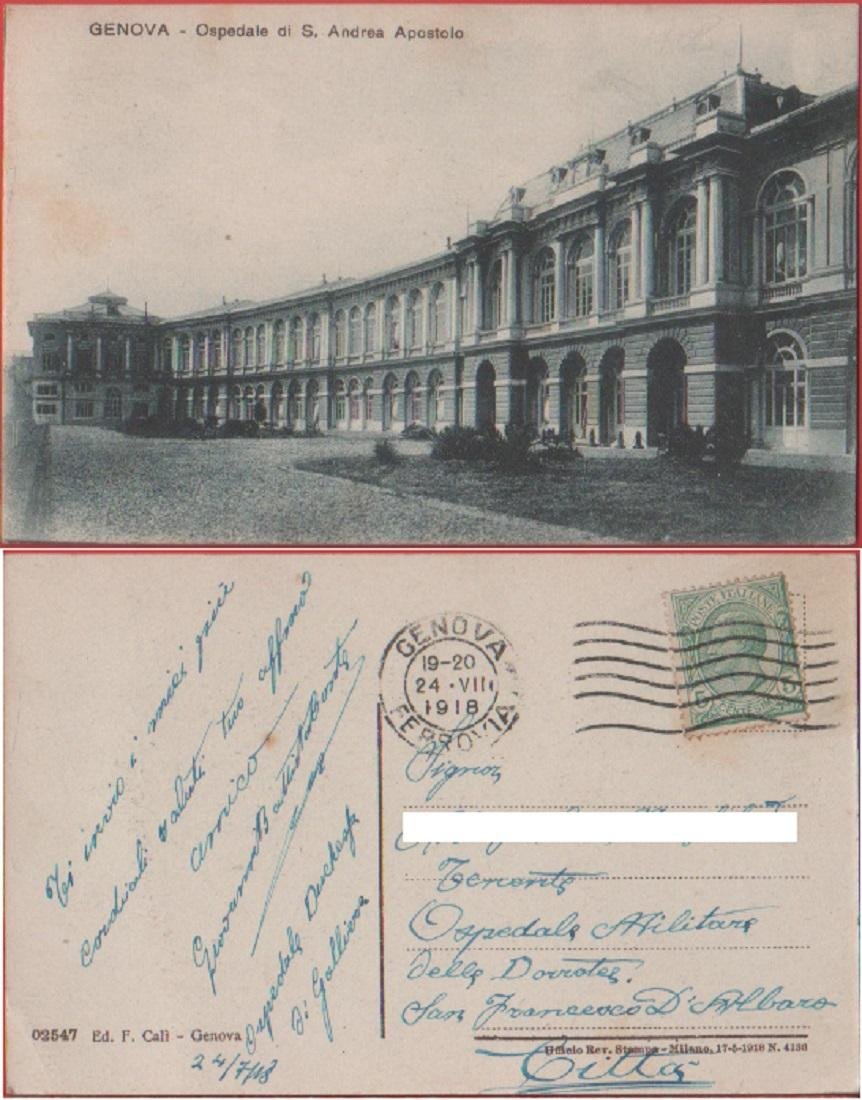 GENOVA - Ospedale di S. Andrea Apostolo
Ti invio i miei più
cordiali saluti tuo affmo
amico
Giovanni Battista
Ospedale Duchessa
di Galliera
24/7/18
02547 Ed. F. Calì - Genova
GENOVA
19-20
24 · VII
1918
FERROVIA
POSTE ITALIANE
5 5
Signor
Tenente
Ospedale Militare
delle Dorotee.
San Francesco D'Albaro
Città
Ufficio Rev. Stampa - Milano, 17-5-1918 N. 4136